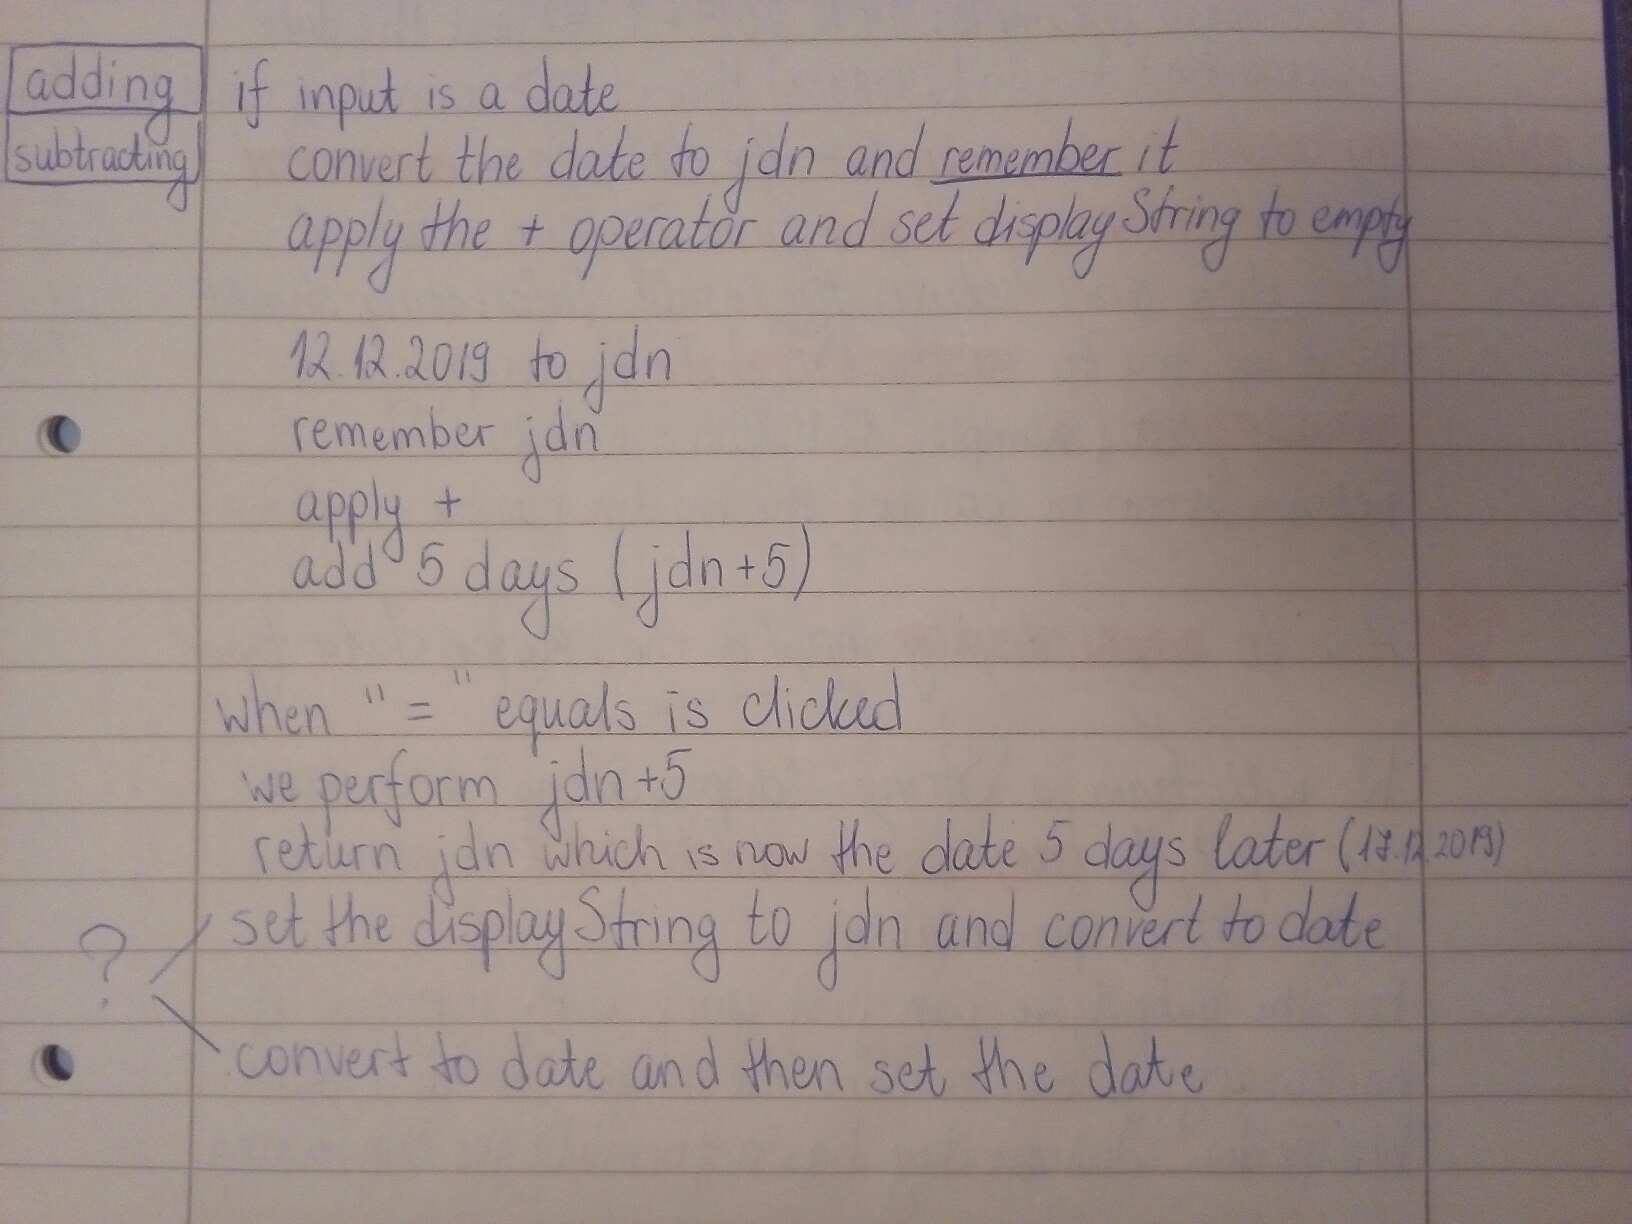 adding if input is a date
subtracting convert the date to jdn and remember it
apply the + operator and set displayString to empty
12.12.2019 to jdn
remember jdn
apply +
add 5 days (jdn+5)
when "=" equals is clicked
we perform jdn+5
return jdn which is now the date 5 days later (17.12.2019)
set the displayString to jdn and convert to date
?
convert to date and then set the date